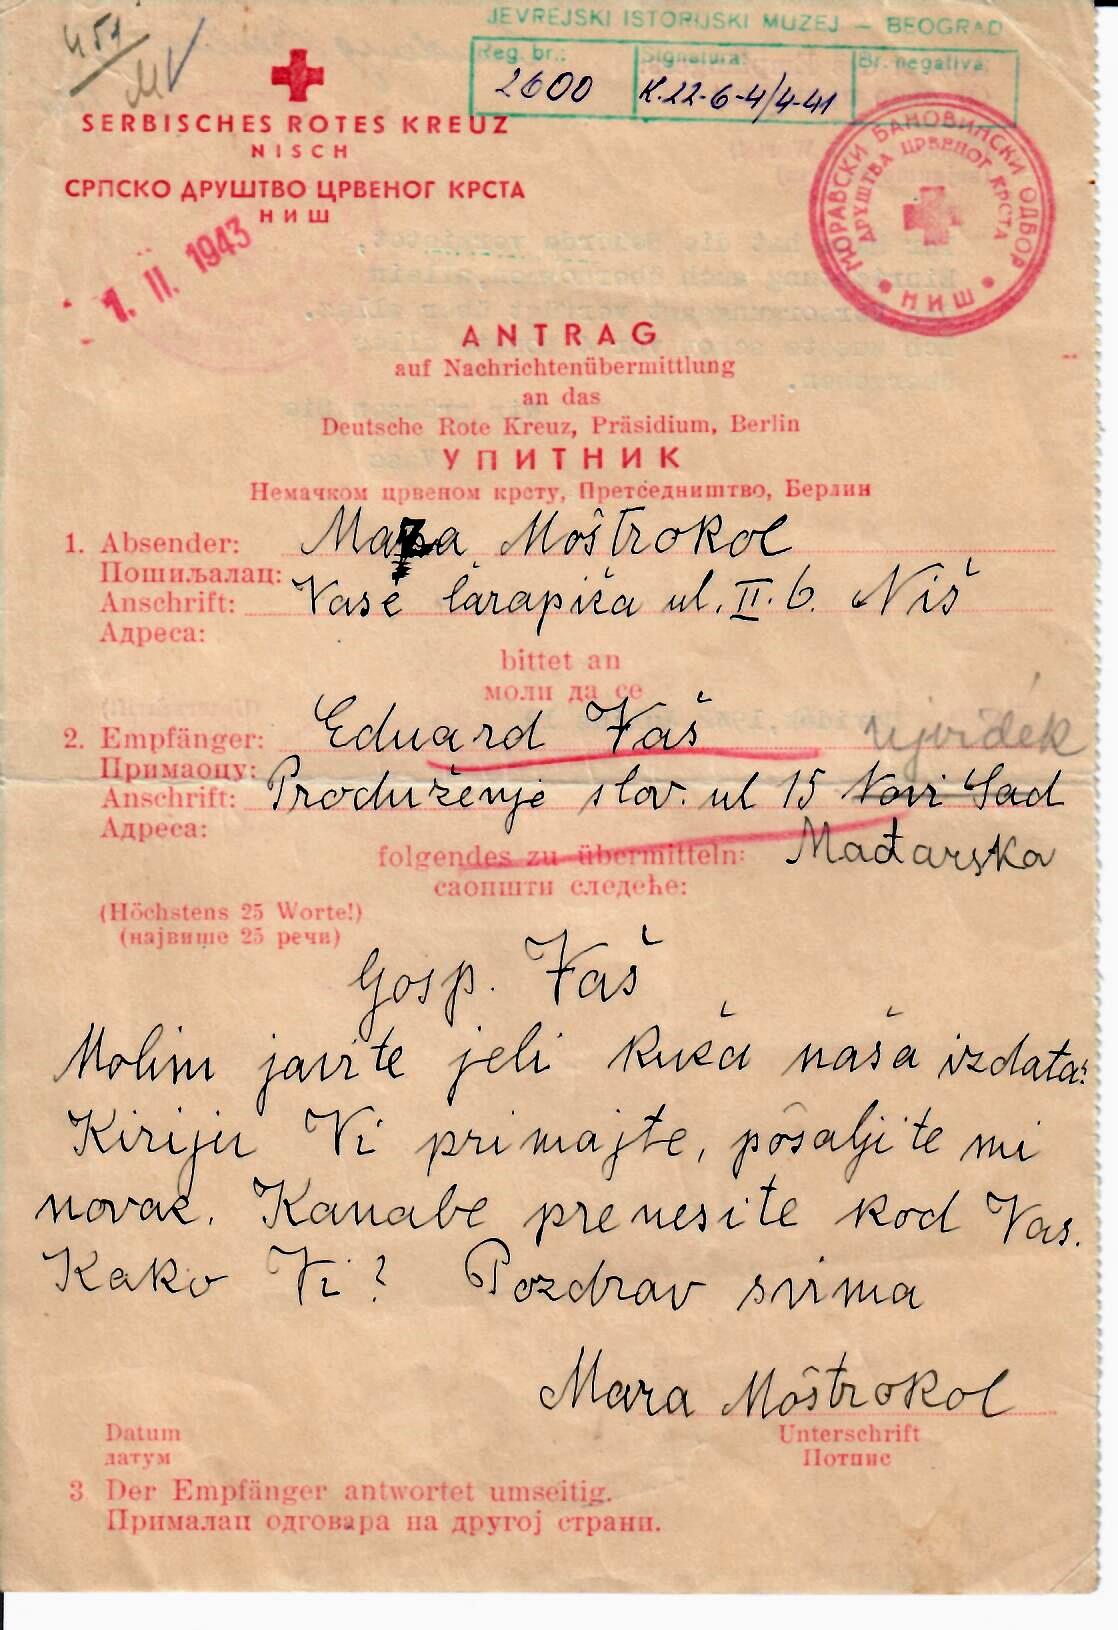 451
JEVREJSKI ISTORIJSKI MUZEJ — BEOGRAD
Reg. br.: Signatura: Br. negativa:
2600 K.22-6-4/4-41
SERBISCHES ROTES KREUZ
NISCH
СРПСКО ДРУШТВО ЦРВЕНОГ КРСТА
НИШ
1. II. 1943
МОРАВСКИ БАНОВИНСКИ ОДБОР
ДРУШТВА ЦРВЕНОГ КРСТА
НИШ
ANTRAG
auf Nachrichtenübermittlung
an das
Deutsche Rote Kreuz, Präsidium, Berlin
УПИТНИК
Немачком црвеном крсту, Претседништво, Берлин
1. Absender: Mara Moštrokol
Пошиљалац:
Anschrift: Vase čarapića ul. II. 6. Niš
Адреса:
bittet an
моли да се
2. Empfänger: Eduard Vaš Ujvidék
Примаоцу:
Anschrift: Produženje slov. ul 15 Novi Sad
Адреса:
Mađarska
folgendes zu übermitteln:
саопшти следеће:
(Höchstens 25 Worte!)
(највише 25 речи)
Gosp. Vaš
Molim javite jeli kuća naša izdata?
Kiriju Vi primajte, pošaljite mi
novac. Kanabe prenesite kod Vas.
Kako Vi? Pozdrav svima
Mara Moštrokol
Datum Unterschrift
датум Потпис
3 Der Empfänger antwortet umseitig.
Прималац одговара на другој страни.